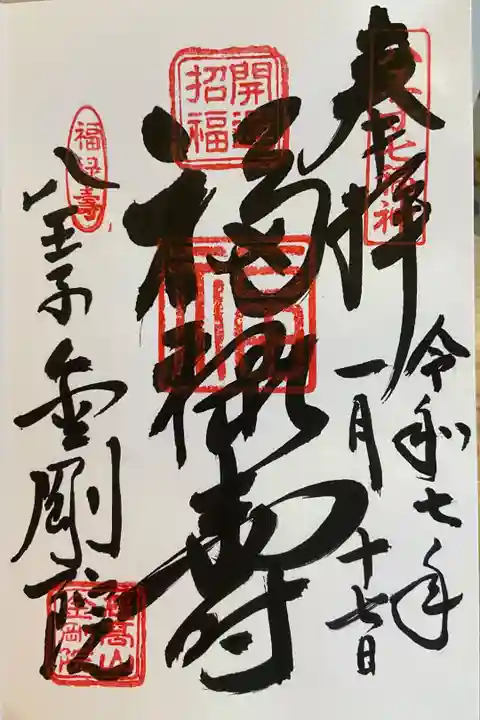 奉拝
令和七年
一月十七日
開運
招福
福禄寿
福禄寿
八王子金剛院
慈高山
金剛院